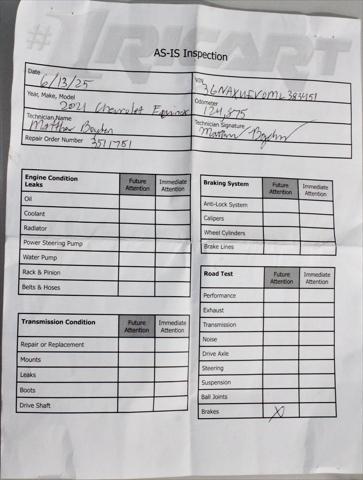 #1RIKART
AS-IS Inspection
Date
6/13/25
VIN
Year, Make, Model
2021 Chevrolet Equinox
Odometer
124,875
Technician Name
Matthew Boyden
Technician Signature
Repair Order Number
3511751
Engine Condition
Leaks
Future Attention
Immediate Attention
Oil
Coolant
Radiator
Power Steering Pump
Water Pump
Rack & Pinion
Belts & Hoses
Braking System
Future Attention
Immediate Attention
Anti-Lock System
Calipers
Wheel Cylinders
Brake Lines
Transmission Condition
Future Attention
Immediate Attention
Repair or Replacement
Mounts
Leaks
Boots
Drive Shaft
Road Test
Future Attention
Immediate Attention
Performance
Exhaust
Transmission
Noise
Drive Axle
Steering
Suspension
Ball Joints
Brakes X